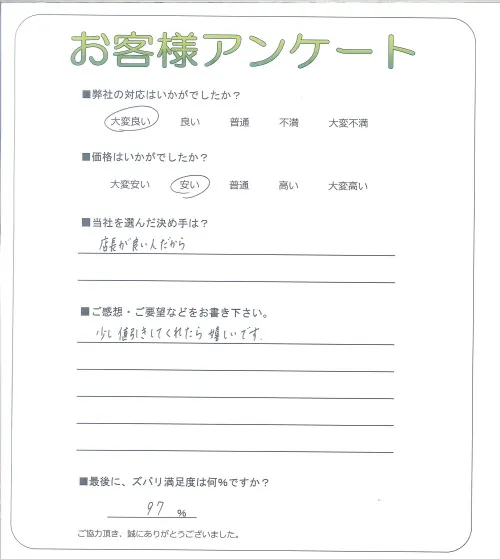 お客様アンケート
■弊社の対応はいかがでしたか？
大変良い 良い 普通 不満 大変不満
■価格はいかがでしたか？
大変安い 安い 普通 高い 大変高い
■当社を選んだ決め手は？
店長が良い人だから
■ご感想・ご要望などをお書き下さい。
少し値引きしてくれたら嬉しいです.
■最後に、ズバリ満足度は何%ですか？
97 %
ご協力頂き、誠にありがとうございました。